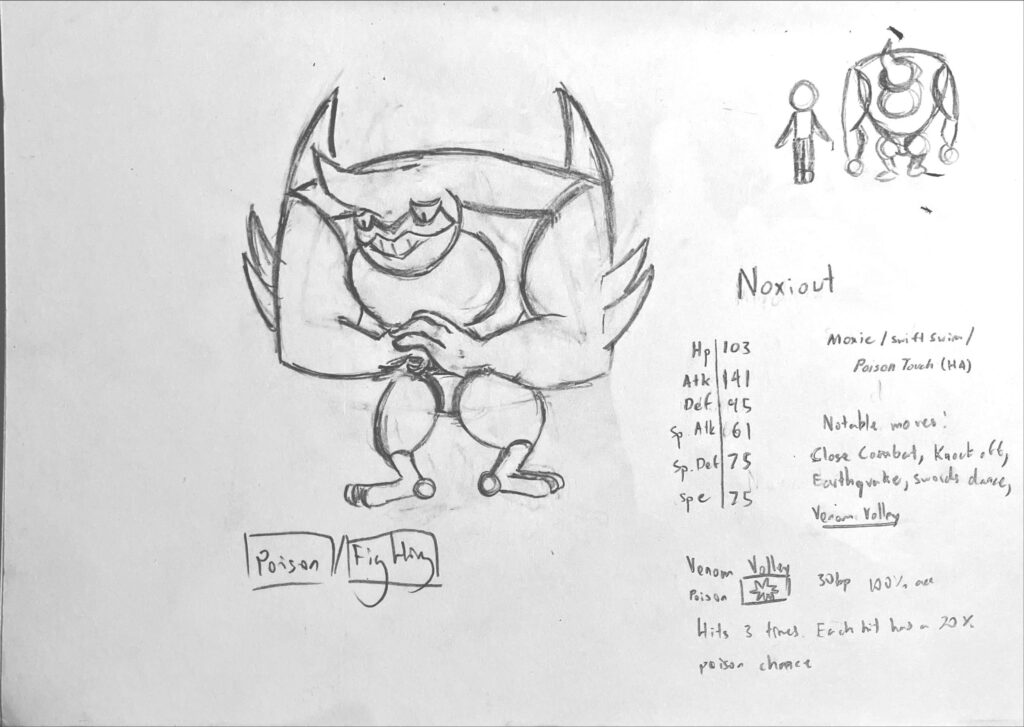 Noxiout
Hp 103
Atk 141
Def 95
Sp. Atk 61
Sp. Def 75
Spe 75
Moxie / swift swim /
Poison Touch (HA)
Notable moves:
Close Combat, Knock off,
Earthquake, swords dance,
Venom Volley
Poison / Fighting
Venom Volley
Poison 30bp 100% acc
Hits 3 times. Each hit has a 20%
poison chance